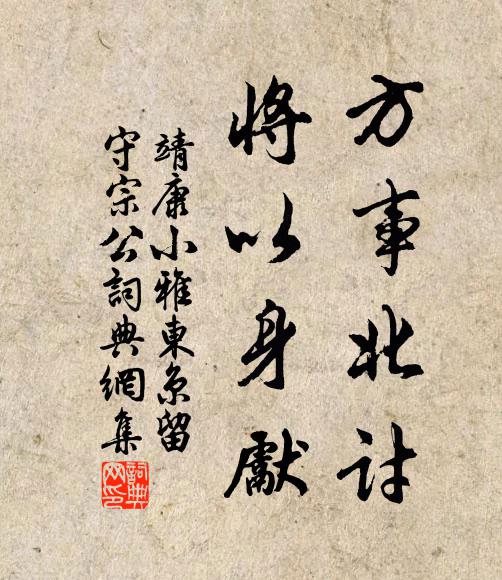 方事北討
將以身獻
靖康小雅東京留
守宗公詞典網集
詞典
网印